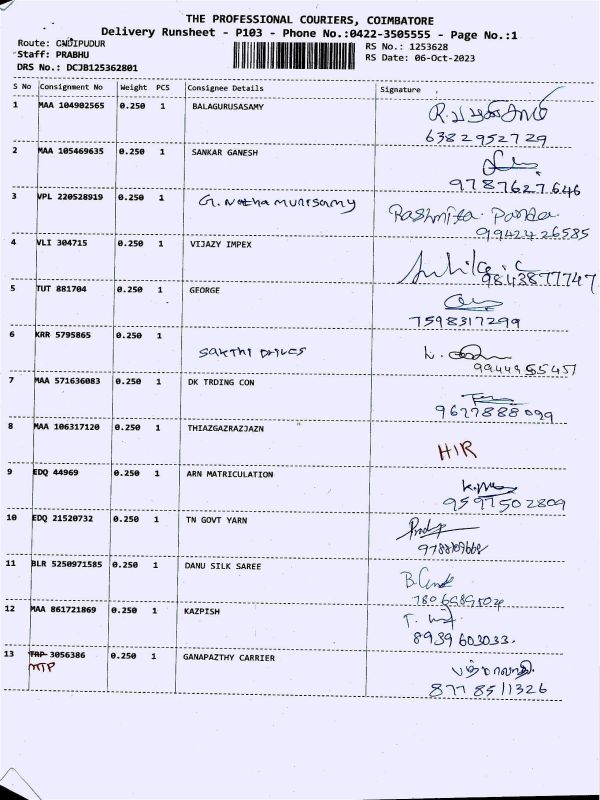 THE PROFESSIONAL COURIERS, COIMBATORE
Delivery Runsheet - P103 - Phone No.:0422-3505555 - Page No.:1
Route: GNDIPUDUR
RS No.: 1253628
Staff: PRABHU
RS Date: 06-Oct-2023
DRS No.: DCJB125362801
S No Consignment No Weight PCS Consignee Details Signature
1 MAA 104902565 0.250 1 BALAGURUSASAMY
6382952729
2 MAA 105469635 0.250 1 SANKAR GANESH
9787627646
3 VPL 220528919 0.250 1 G. Nathamunisamy Rashmita Panda
9942426585
4 VLI 304715 0.250 1 VIJAZY IMPEX
9843877747
5 TUT 881704 0.250 1 GEORGE
7598317299
6 KRR 5795865 0.250 1
SAKTHI DRIVES
9944955451
7 MAA 571636083 0.250 1 DK TRDING CON
9627888099
8 MAA 106317120 0.250 1 THIAZGAZRAZJAZN
HIR
9 EDQ 44969 0.250 1 ARN MATRICULATION
9597502809
10 EDQ 21520732 0.250 1 TN GOVT YARN
11 BLR 5250971585 0.250 1 DANU SILK SAREE
12 MAA 861721869 0.250 1 KAZPISH
8939603033.
13 TRP 3056386 0.250 1 GANAPAZTHY CARRIER
MTP
8778511326